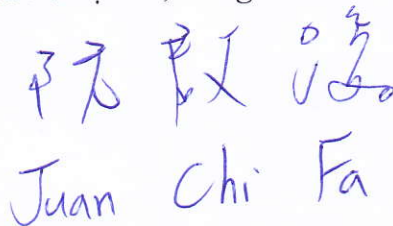 阮 啟
Juan Chi Fa